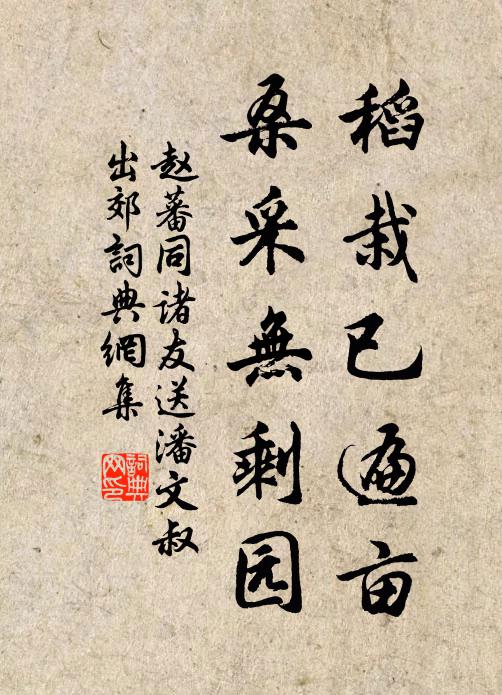 稻栽已遍亩
桑采無剩园
赵蕃同诸友送潘文叔
出郊詞典網集
詞典网印